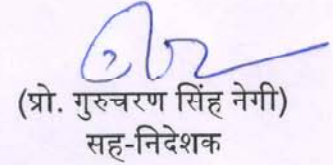 (प्रो. गुरुचरण सिंह नेगी)
सह-निदेशक